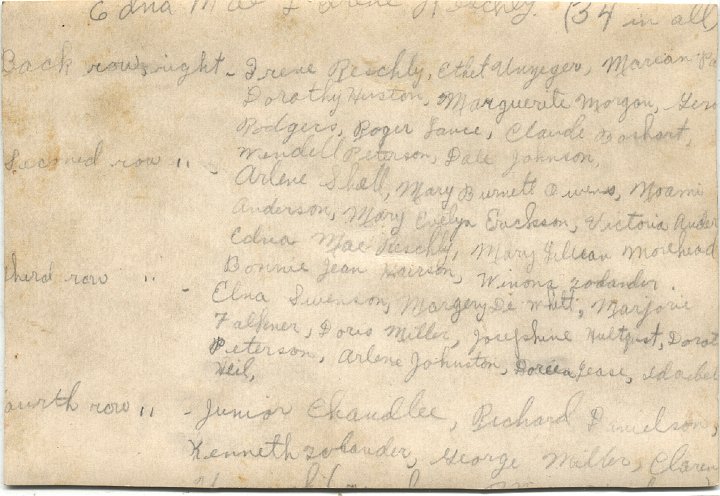 Edna Mae & Irene Reschly. (34 in all)
Back row, right - Irene Reschly, Ethel Unzeger, Marian
Dorothy Huston, Marguerite Morgan,
Rodgers, Roger Lauce, Claude Boshart,
Seconed row " - Wendell Peterson, Dale Johnson,
Arlene Shell, Mary Burnett Owens, Noami
Anderson, Mary Evelyn Erickson, Victoria Ander
Edna Mae Reschly, Mary Lillian Morehead
Bonnie Jean Fairson, Winona Zolander.
third row " - Elna Swenson, Margery De Witt, Marjorie
Falkner, Doris Miller, Josephine Hultquist, Dorot
Peterson, Arlene Johnston, Doreen Lease,
Neil,
ourth row " - Junior Chandlee, Richard Danielson,
Kenneth Zolander, George Miller, Claren